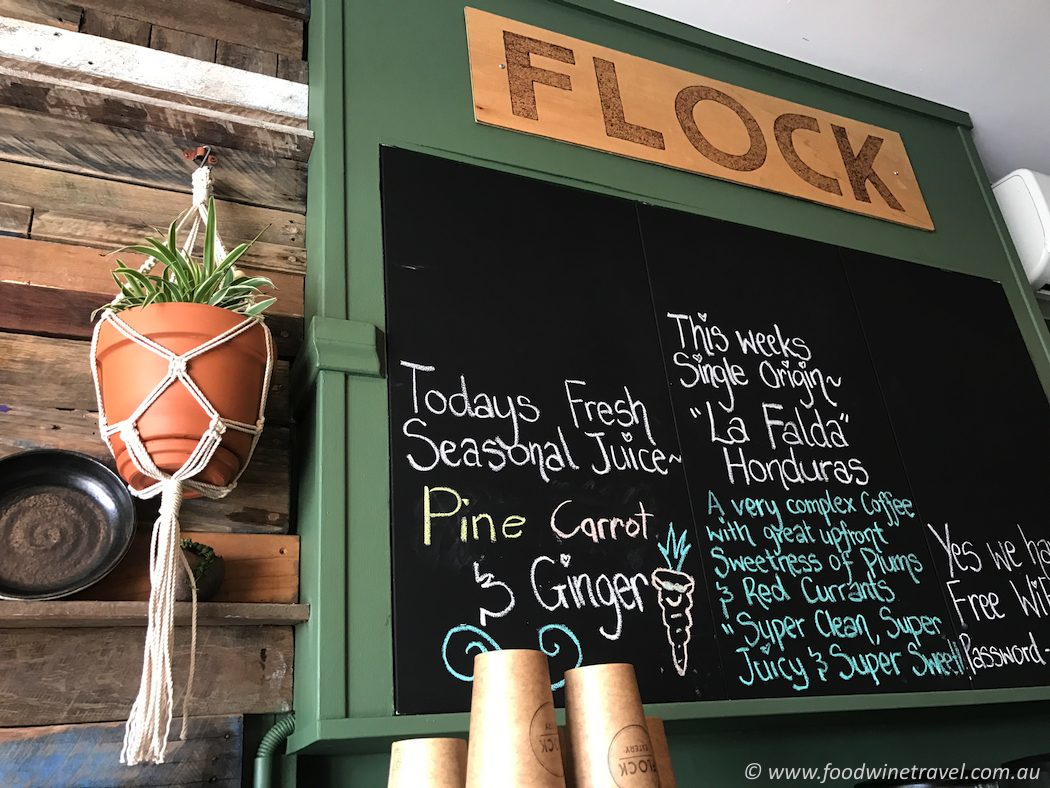 FLOCK
Todays Fresh
Seasonal Juice~
Pine Carrot
& Ginger
This weeks
Single Origin~
"La Falda"
Honduras
A very complex Coffee
with great upfront
Sweetness of Plums
& Red Currants
"Super Clean, Super
Juicy & Super Sweet!
Yes we ha
Free Wi
Password-
FLOCK
EATERY
FLOCK
© www.foodwinetravel.com.au